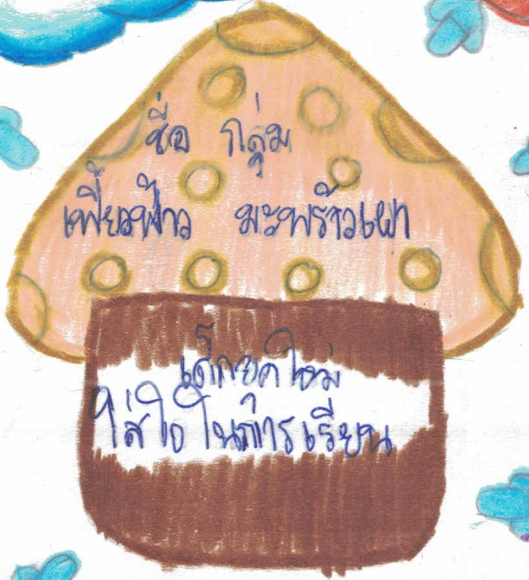 ชื่อ กลุ่ม
เฟี้ยวฟ้าว มะพร้าวเผา
เด็กยุคใหม่
ใส่ใจในการเรียน